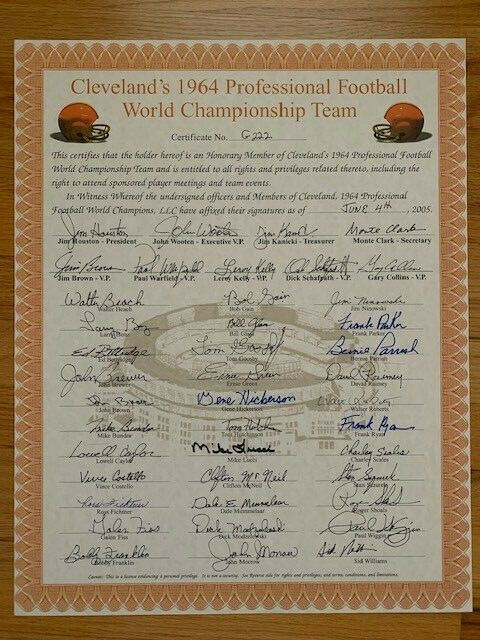 Cleveland's 1964 Professional Football
World Championship Team
Certificate No. G222
This certifies that the holder hereof is an Honorary Member of Cleveland's 1964 Professional Football
World Championship Team and is entitled to all rights and privileges related thereto, including the
right to attend sponsored player meetings and team events.
In Witness Whereof the undersigned officers and Members of Cleveland, 1964 Professional
Football World Champions, LLC have affixed their signatures as of JUNE 4th, 2005.
Jim Houston John Wooten Jim Kanicki Monte Clark
Jim Houston - President John Wooten - Executive V.P. Jim Kanicki - Treasurer Monte Clark - Secretary
Jim Brown Paul Warfield Leroy Kelly Dick Schafrath Gary Collins
Jim Brown - V.P. Paul Warfield - V.P. Leroy Kelly - V.P. Dick Schafrath - V.P. Gary Collins - V.P.
Walter Beach Bob Gain Jim Ninowski
Walter Beach Bob Gain Jim Ninowski
Larry Bill Glass Frank Parker
Larry Bill Glass Frank Parker
Ed Bettridge Tom Goosby Bernie Parrish
Ed Bettridge Tom Goosby Bernie Parrish
John Brewer Ernie Green David Raimey
John Brewer Ernie Green David Raimey
John Brown Gene Hickerson Walter Roberts
John Brown Gene Hickerson Walter Roberts
Mike Bundra Tom Hutchinson Frank Ryan
Mike Bundra Tom Hutchinson Frank Ryan
Lowell Caylor Mike Lucci Charley Scales
Lowell Caylor Mike Lucci Charley Scales
Vince Costello Clifton McNeil Stan Sczurek
Vince Costello Clifton McNeil Stan Sczurek
Ross Fichtner Dale E. Memmelaar Roger Shoals
Ross Fichtner Dale Memmelaar Roger Shoals
Galen Fiss Dick Modzelewski Paul Wiggin
Galen Fiss Dick Modzelewski Paul Wiggin
Bobby Franklin John Morrow Sid Williams
Bobby Franklin John Morrow Sid Williams
Caveat: This is a license evidencing a personal privilege. It is not a security. See Reverse side for rights and privileges, and terms, conditions, and limitations.